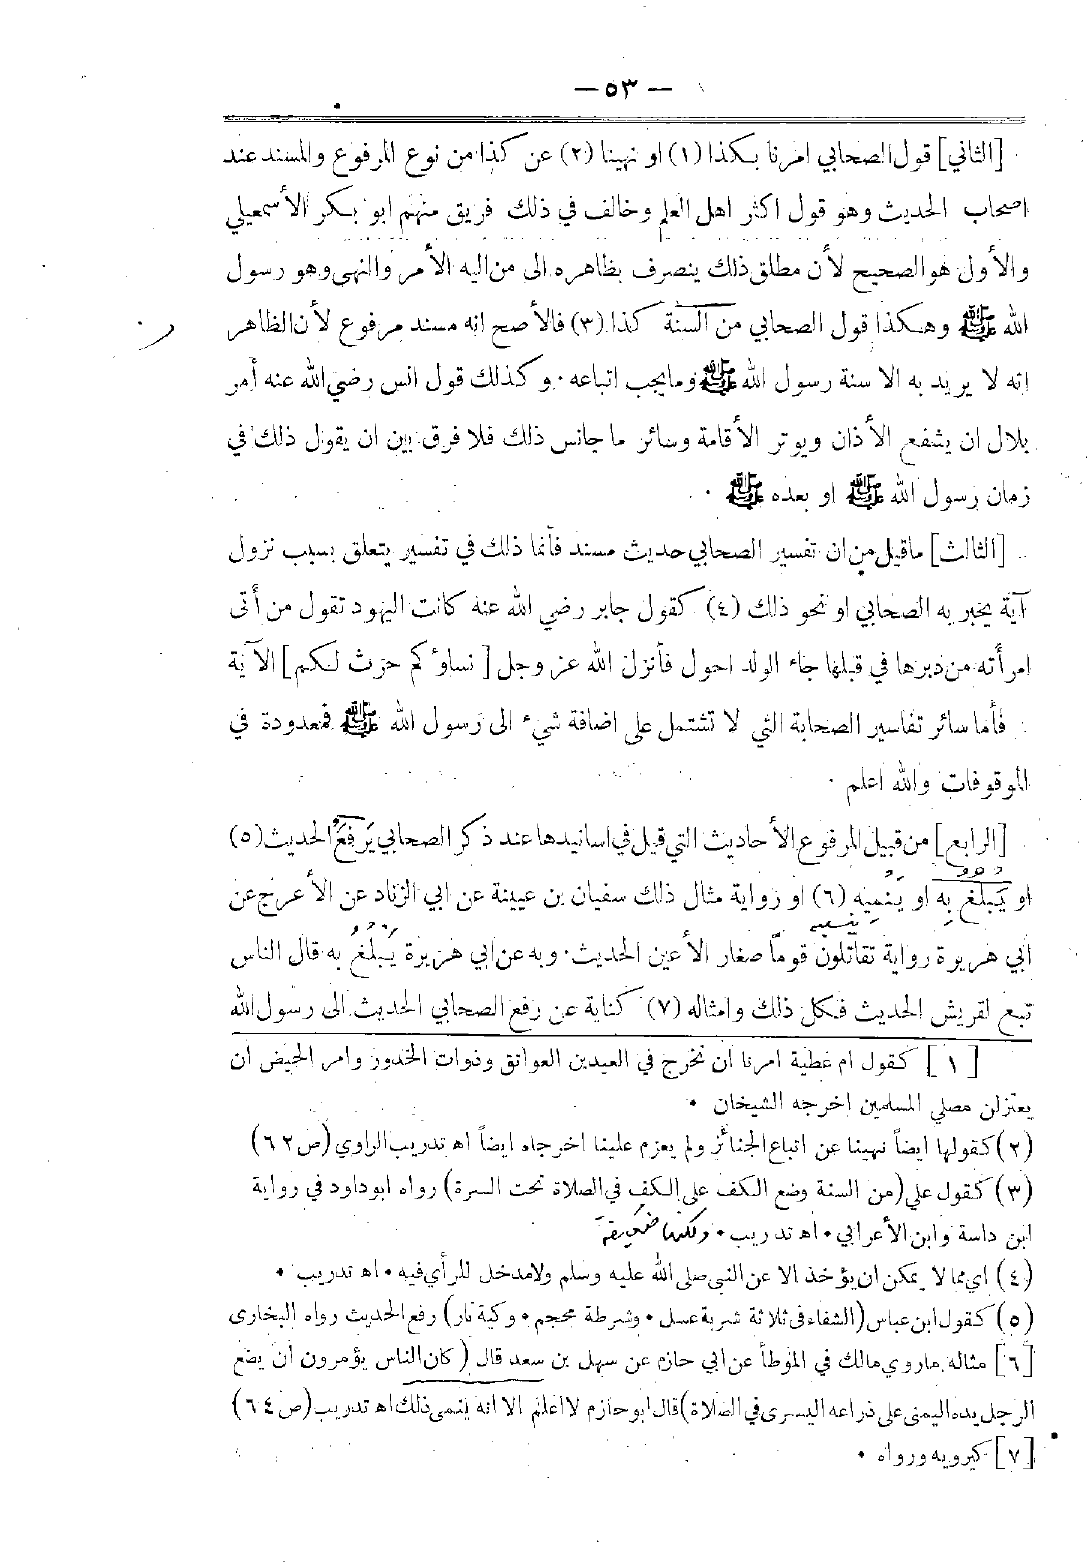 — ٥٣ —
[الثاني] قول الصحابي امرنا بكذا (١) او نهينا (٢) عن كذا من نوع المرفوع والمسند عند
اصحاب الحديث وهو قول اكثر اهل العلم وخالف في ذلك فريق منهم ابو بكر الأسمعيلي
والأول هو الصحيح لأن مطلق ذلك ينصرف بظاهره الى من اليه الأمر والنهى وهو رسول
الله ﷺ وهكذا قول الصحابي من السنة كذا (٣) فالأصح انه مسند مرفوع لأن الظاهر
انه لا يريد به الا سنة رسول الله ﷺ وما يجب اتباعه · وكذلك قول انس رضي الله عنه أمر
بلال ان يشفع الأذان ويوتر الأقامة وسائر ما جانس ذلك فلا فرق بين ان يقول ذلك في
زمان رسول الله ﷺ او بعده ﷺ ·
[الثالث] ماقيل من ان تفسير الصحابي حديث مسند فأنما ذلك في تفسير يتعلق بسبب نزول
آية يخبر به الصحابي او نحو ذلك (٤) كقول جابر رضي الله عنه كانت اليهود تقول من أتى
امرأته من دبرها في قبلها جاء الولد احول فأنزل الله عز وجل [نساؤكم حرث لكم] الآية
فأما سائر تفاسير الصحابة التي لا تشتمل على اضافة شيء الى رسول الله ﷺ فمعدودة في
الموقوفات والله اعلم ·
[الرابع] من قبيل المرفوع الأحاديث التي قيل في اسانيدها عند ذكر الصحابي يَرفعُ الحديث (٥)
او يَبلغ به او يَنميه (٦) او رواية مثال ذلك سفيان بن عيينة عن ابي الزناد عن الأعرج عن
ابي هريرة رواية تقاتلون قوماً صغار الأعين الحديث · وبه عن ابي هريرة يَبلغ به قال الناس
تبع لقريش الحديث فكل ذلك وامثاله (٧) كناية عن رفع الصحابي الحديث الى رسول الله
[١] كقول ام عطية امرنا ان نخرج في العيدين العواتق وذوات الخدور وامر الحيض ان
يعتزلن مصلى المسلمين اخرجه الشيخان •
(٢) كقولها ايضاً نهينا عن اتباع الجنائز ولم يعزم علينا اخرجاه ايضاً اه تدريب الراوي (ص ٦٢)
(٣) كقول علي (من السنة وضع الكف على الكف في الصلاة تحت السرة) رواه ابو داود في رواية
ابن داسة وابن الأعرابي • اه تدريب • ولكنها ضعيفة
(٤) اي مما لا يمكن ان يؤخذ الا عن النبي صلى الله عليه وسلم ولا مدخل للرأي فيه • اه تدريب •
(٥) كقول ابن عباس (الشفاء في ثلاثة شربة عسل • وشرطة محجم • وكية نار) رفع الحديث رواه البخارى
[٦] مثاله ما روي مالك في الموطأ عن ابي حازم عن سهل بن سعد قال (كان الناس يؤمرون أن يضع
الرجل يده اليمنى على ذراعه اليسرى في الصلاة) قال ابو حازم لا اعلم الا انه ينمى ذلك اه تدريب (ص ٦٤)
[٧] كيرويه ورواه •